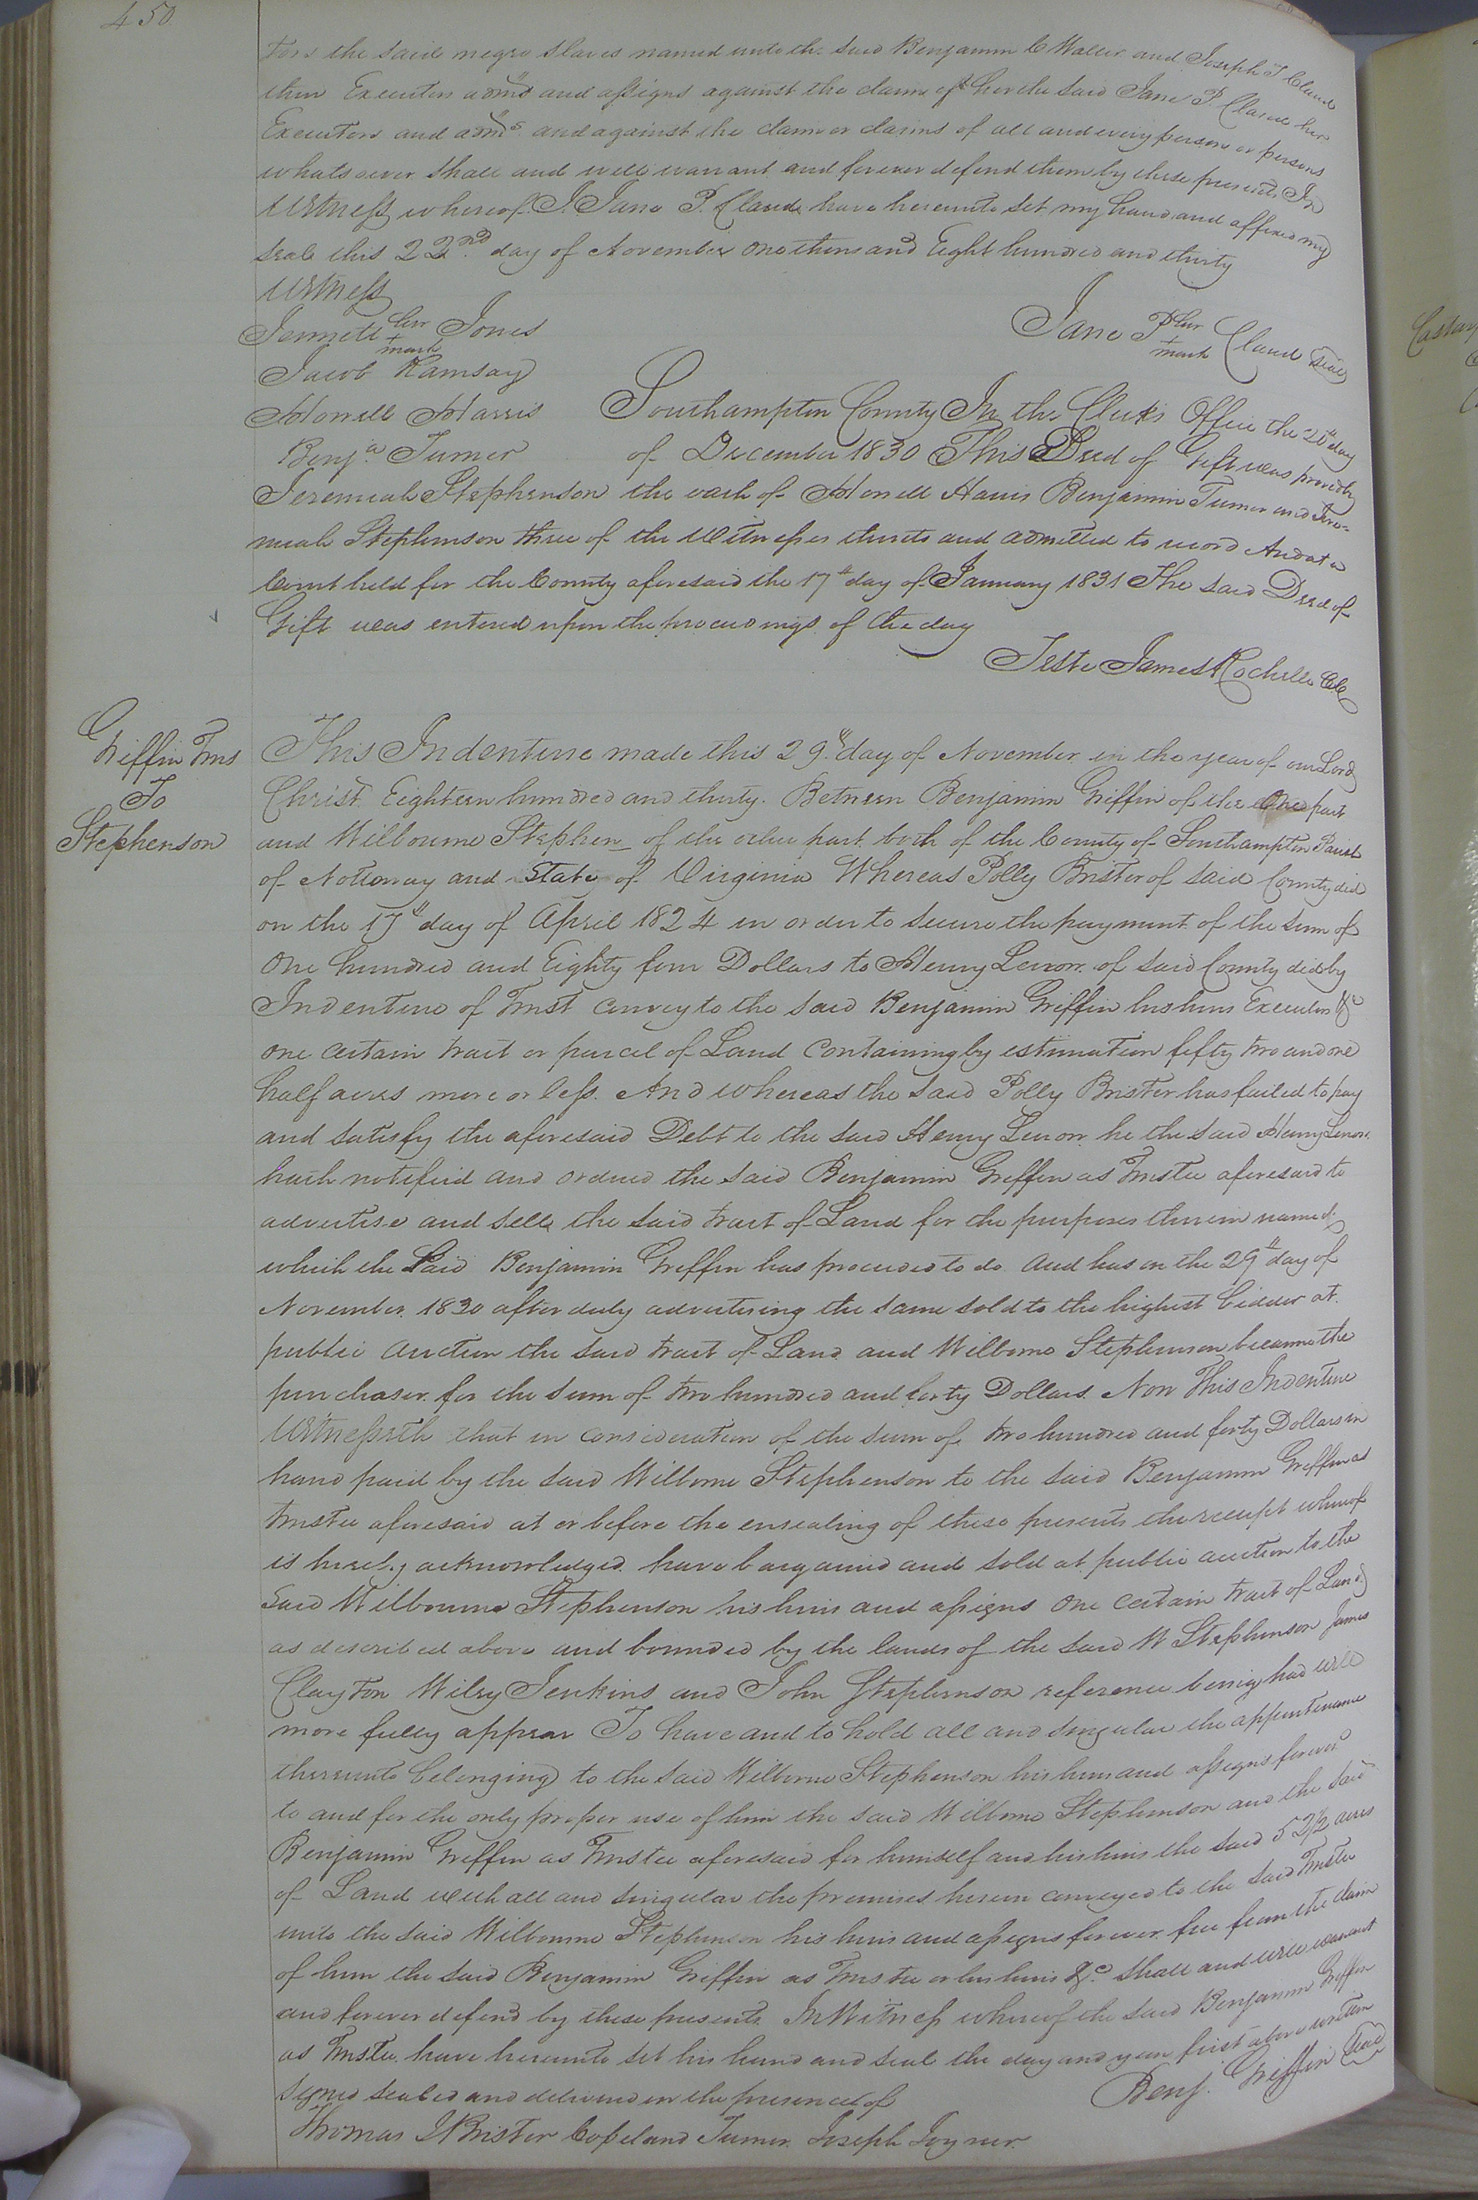 450
tors the said negro slaves named unto the said Benjamin C Waller and Joseph T Claud
their Executors adms and assigns against the claim of her the said Jane P. Claud her
Executors and adms and against the claim or claims of all and every person or persons
whatsoever shall and will warrant and forever defend them by these presents In
Witness whereof I Jane P. Claud have hereunto set my hand and affixed my
seal this 22nd day of November one thousand Eight hundred and thirty
Witness
Jennett her + mark Jones
Jane P her + mark Claud Seal
Jacob Ramsay
Southampton County In the Clerks Office the 20th day
Benja Turner
of December 1830 This Deed of Gift was proved by
Jeremiah Stephenson the oath of Harris Benjamin Turner and Jere-
miah Stephenson three of the Witnesses thereto and admitted to record And at a
Court held for the County aforesaid the 17th day of January 1831 The said Deed of
Gift was entered upon the proceedings of the day
Teste James Rochelle CC
Griffin Trus
To
Stephenson
This Indenture made this 29th day of November in the year of our Lord
Christ Eighteen hundred and thirty. Between Benjamin Griffin of the One part
and Wilbourne Stephen of the other part both of the County of Southampton Parish
of Nottoway and State of Virginia Whereas Polly Brister of said County did
on the 17th day of April 1824 in order to secure the payment of the sum of
One hundred and Eighty four Dollars to Henry Lenow of said County did by
Indenture of Trust convey to the said Benjamin Griffin his heirs Executors &c
one certain tract or parcel of Land containing by estimation fifty two and one
half acres more or less. And whereas the said Polly Brister has failed to pay
and satisfy the aforesaid Debt to the said Henry Lenow he the said Henry Lenow
hath notifeid and ordered the said Benjamin Griffin as Trustee aforesaid to
advertise and sell the said tract of Land for the purposes therein named
which the Said Benjamin Griffin has proceeded to do And has on the 29th day of
November 1830 after duly advertising the same sold to the highest bidder at
public Auction the said tract of Land and Wilborne Stephenson became the
purchaser for the sum of two hundred and forty Dollars Now This Indenture
Witnesseth that in consideration of the sum of two hundred and forty Dollars in
hand paid by the said Wilborne Stephenson to the said Benjamin Griffin as
trustee aforesaid at or before the ensealing of these presents the receipt whereof
is hereby acknowledged have bargained and sold at public auction to the
said Wilbourne Stephenson his heirs and assigns One certain tract of Land
as described above and bounded by the lands of the said W Stephenson James
Clayton Wiley Jenkins and John Stephenson reference being had will
more fully appear To have and to hold all and singular the appurtenance
thereunto belonging to the said Wilborne Stephenson his heirs and assigns forever
to and for the only proper use of him the said Wilborne Stephenson and the said
Benjamin Griffin as Trustee aforesaid for himself and his heirs the said 52 1/2 acres
of Land with all and singular the premises herein conveyed to the said Trustee
unto the said Wilbourne Stephenson his heirs and assigns forever free from the claim
of him the said Benjamin Griffin as Trustee or his heirs &c shall and will warrant
and forever defend by these presents In Witness whereof the said Benjamin Griffin
as Trustee have hereunto set his hand and seal the day and year first above written
signed sealed and delivered in the presence of
Benj. Griffin Seal
Thomas J Brister Copeland Turner Joseph Joyner